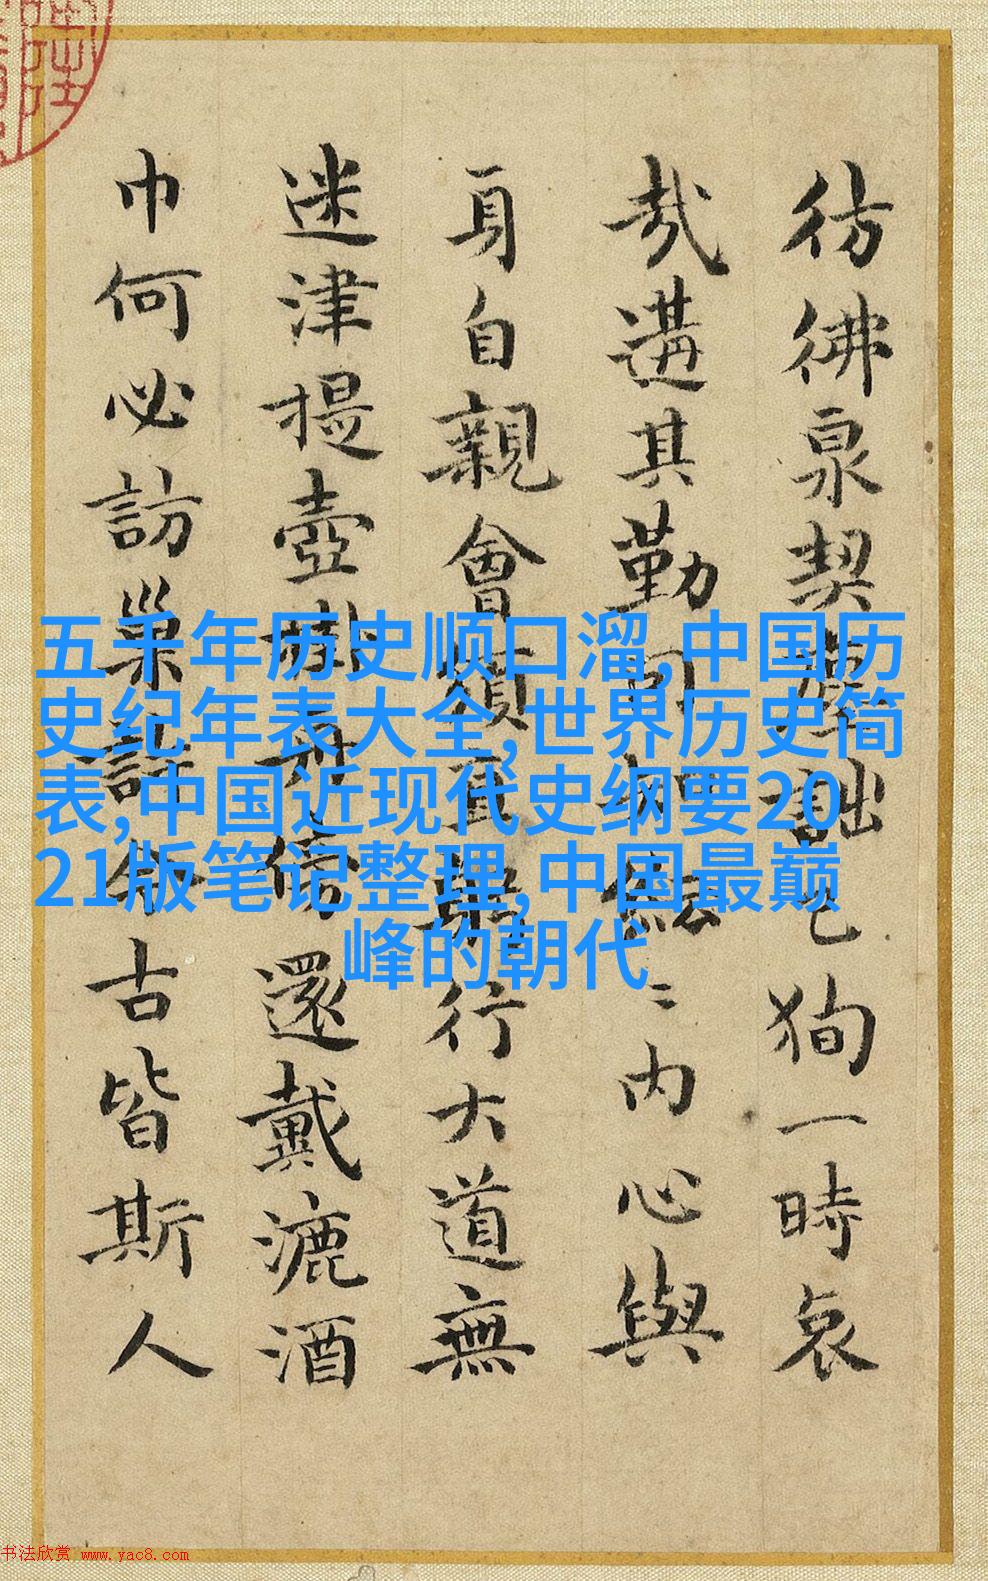 彷彿泉契已狥一時哀
哉遘其勤紜〻内心與
身自親會煩宜行大道無
迷津提壺掛舟傍還戴漉酒
巾何必訪巢許今古皆斯人
五千年历史顺口溜,中国历
史纪年表大全,世界历史简
表,中国近现代史纲要20
21版笔记整理,中国最巅
峰的朝代
书法欣赏 www.yac8.com